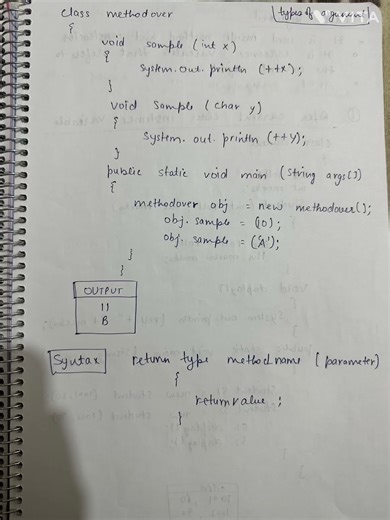 class methodover
types of argument
{
void sample (int x)
{
System.out.println (++x);
}
void sample (char y)
{
System.out.println (++y);
}
public static void main (String args[])
{
methodover obj = new methodover();
obj.sample = (10);
obj.sample = ('A');
}
}
OUTPUT
11
B
Syntax return type method name (parameter)
{
return value ;
}